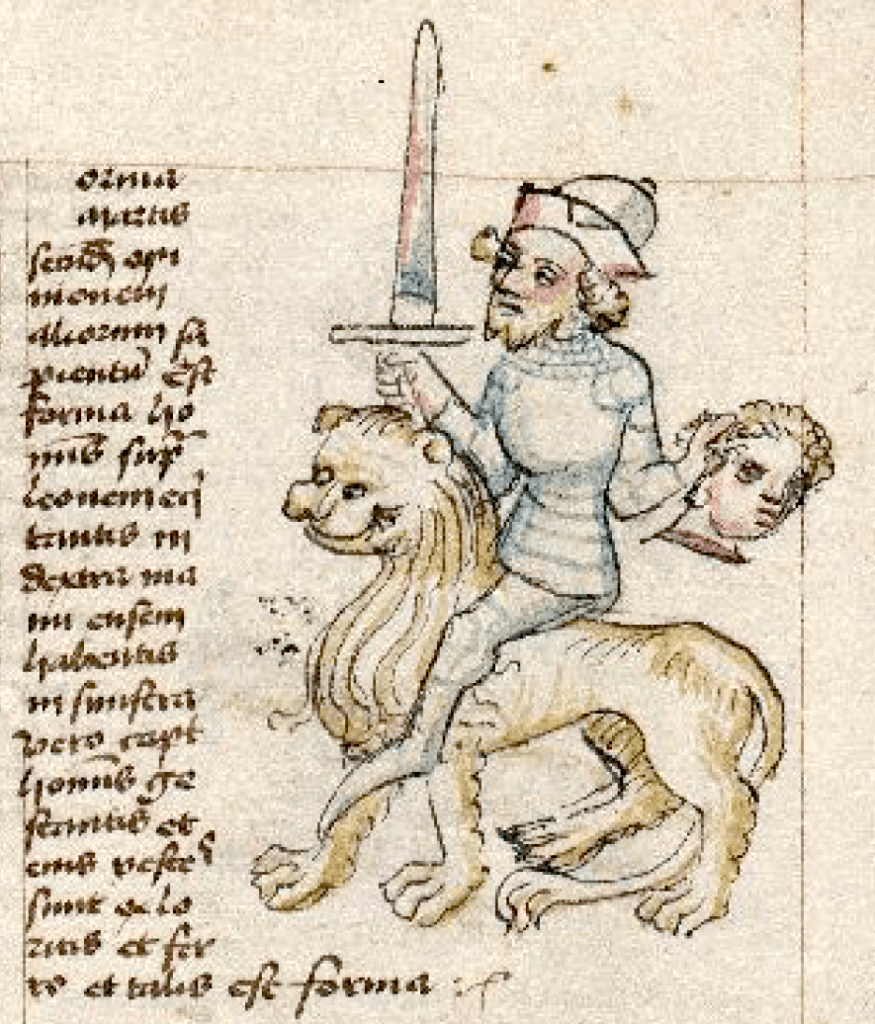 orma
martis
scdm opi
nionem
aliorum sa
pientū est
forma ho
mīs sup̄
leonem eq
tantis in
dextra ma
nu ensem
habentis
in sinistra
vero capt
homīs ge
stantis et
eius vestes
sunt ex lo
ricis et fer
ro et talis est forma